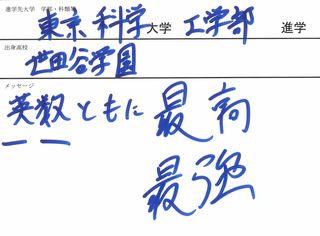 進学先大学 学部・科類等
東京科学大学 工学部 進学
出身高校
世田谷学園
メッセージ
英数ともに最高
最強